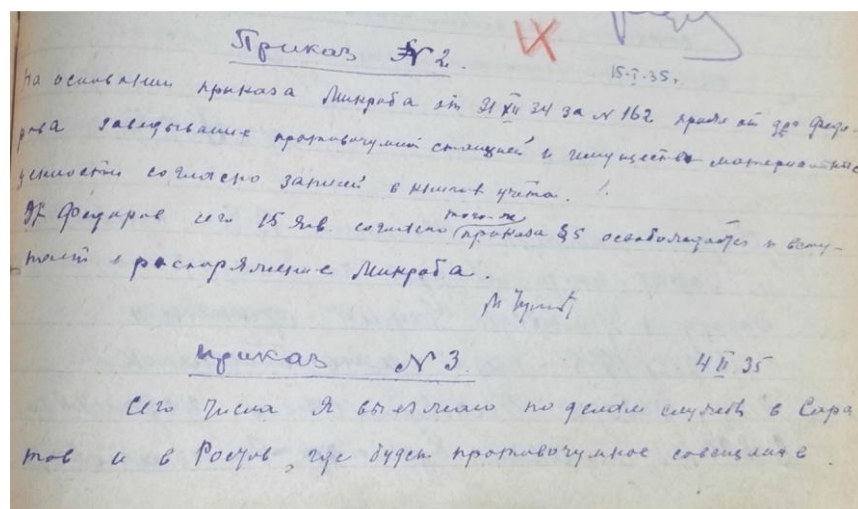 IX
Приказ N 2.
15-I-35.
На основании приказа Микроба от 31 XII 34 за N 162 принял от д-ра Федо-
рова заведывание противочумной станцией и имущество материальные
ценности согласно записей в книгах учёта.
Др Федоров сего 15 Янв. согласно того-же приказа § 5 освобождается и всту-
пает в распоряжение Микроба.
Приказ N 3.
4 II 35
Сего числа я выезжаю по делам службы в Сара
тов и в Ростов, где будет противочумное совещание.